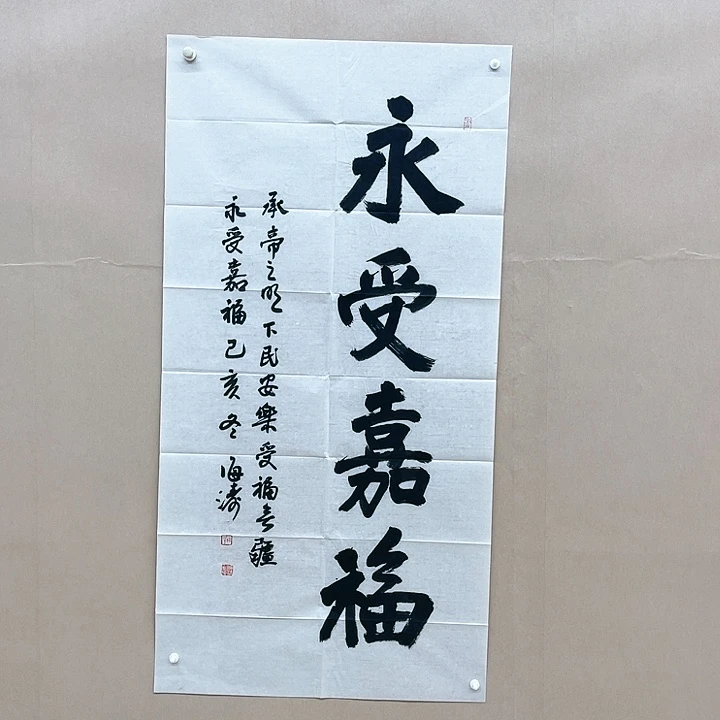 永受嘉福
承帝之明下民安樂受福無疆
永受嘉福己亥冬海濤